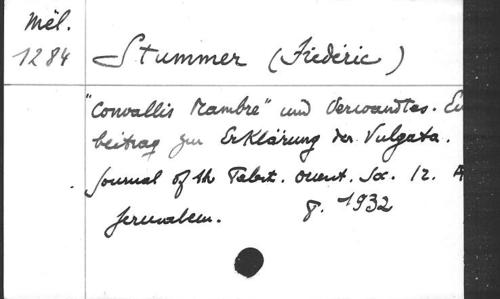 Mél.
1284
Stummer (Fréderic)
"Convallis Mambre" und Verwandtes. Ei
beitrag zur Erklärung der Vulgata.
Journal of th Palest. orient. Soc. 12. A
Jerusalem. 8. 1932